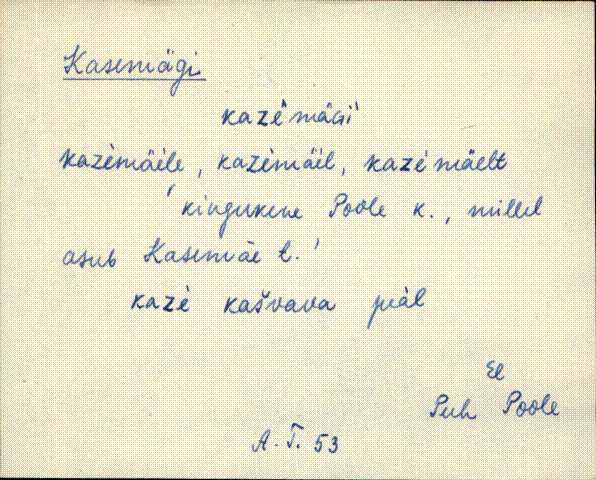 Kasemägi
kazèmäGi
kazèmäèle, kazèmäèl, kazèmäelt
'kingukene Poole k., millel
asub Kasemäe t.'
kazè kašvava piäl
El
Puh Poole
A. T. 53